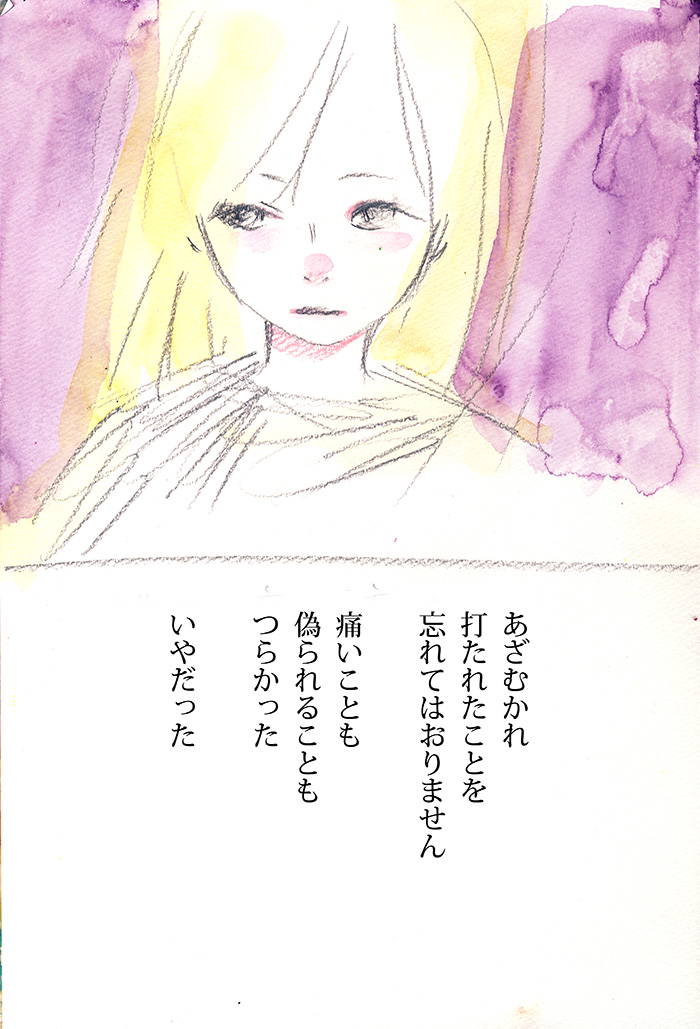 あざむかれ
打たれたことを
忘れてはおりません
痛いことも
偽られることも
つらかった
いやだった